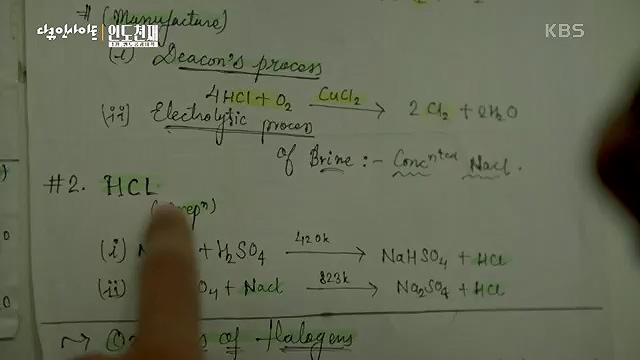 다큐인사이트 인도천재
KBS
# (Manufacture)
(i) Deacon's process
4HCl + O₂ CuCl₂ → 2Cl₂ + 2H₂O
(ii) Electrolytic process
of Brine :- Concⁿᵗᵉᵈ Nacl.
#2. HCL
(i) + H₂SO₄ 420k → NaHSO₄ + HCl
(ii) O₄ + Nacl 823k → Na₂SO₄ + HCl
of Halogens